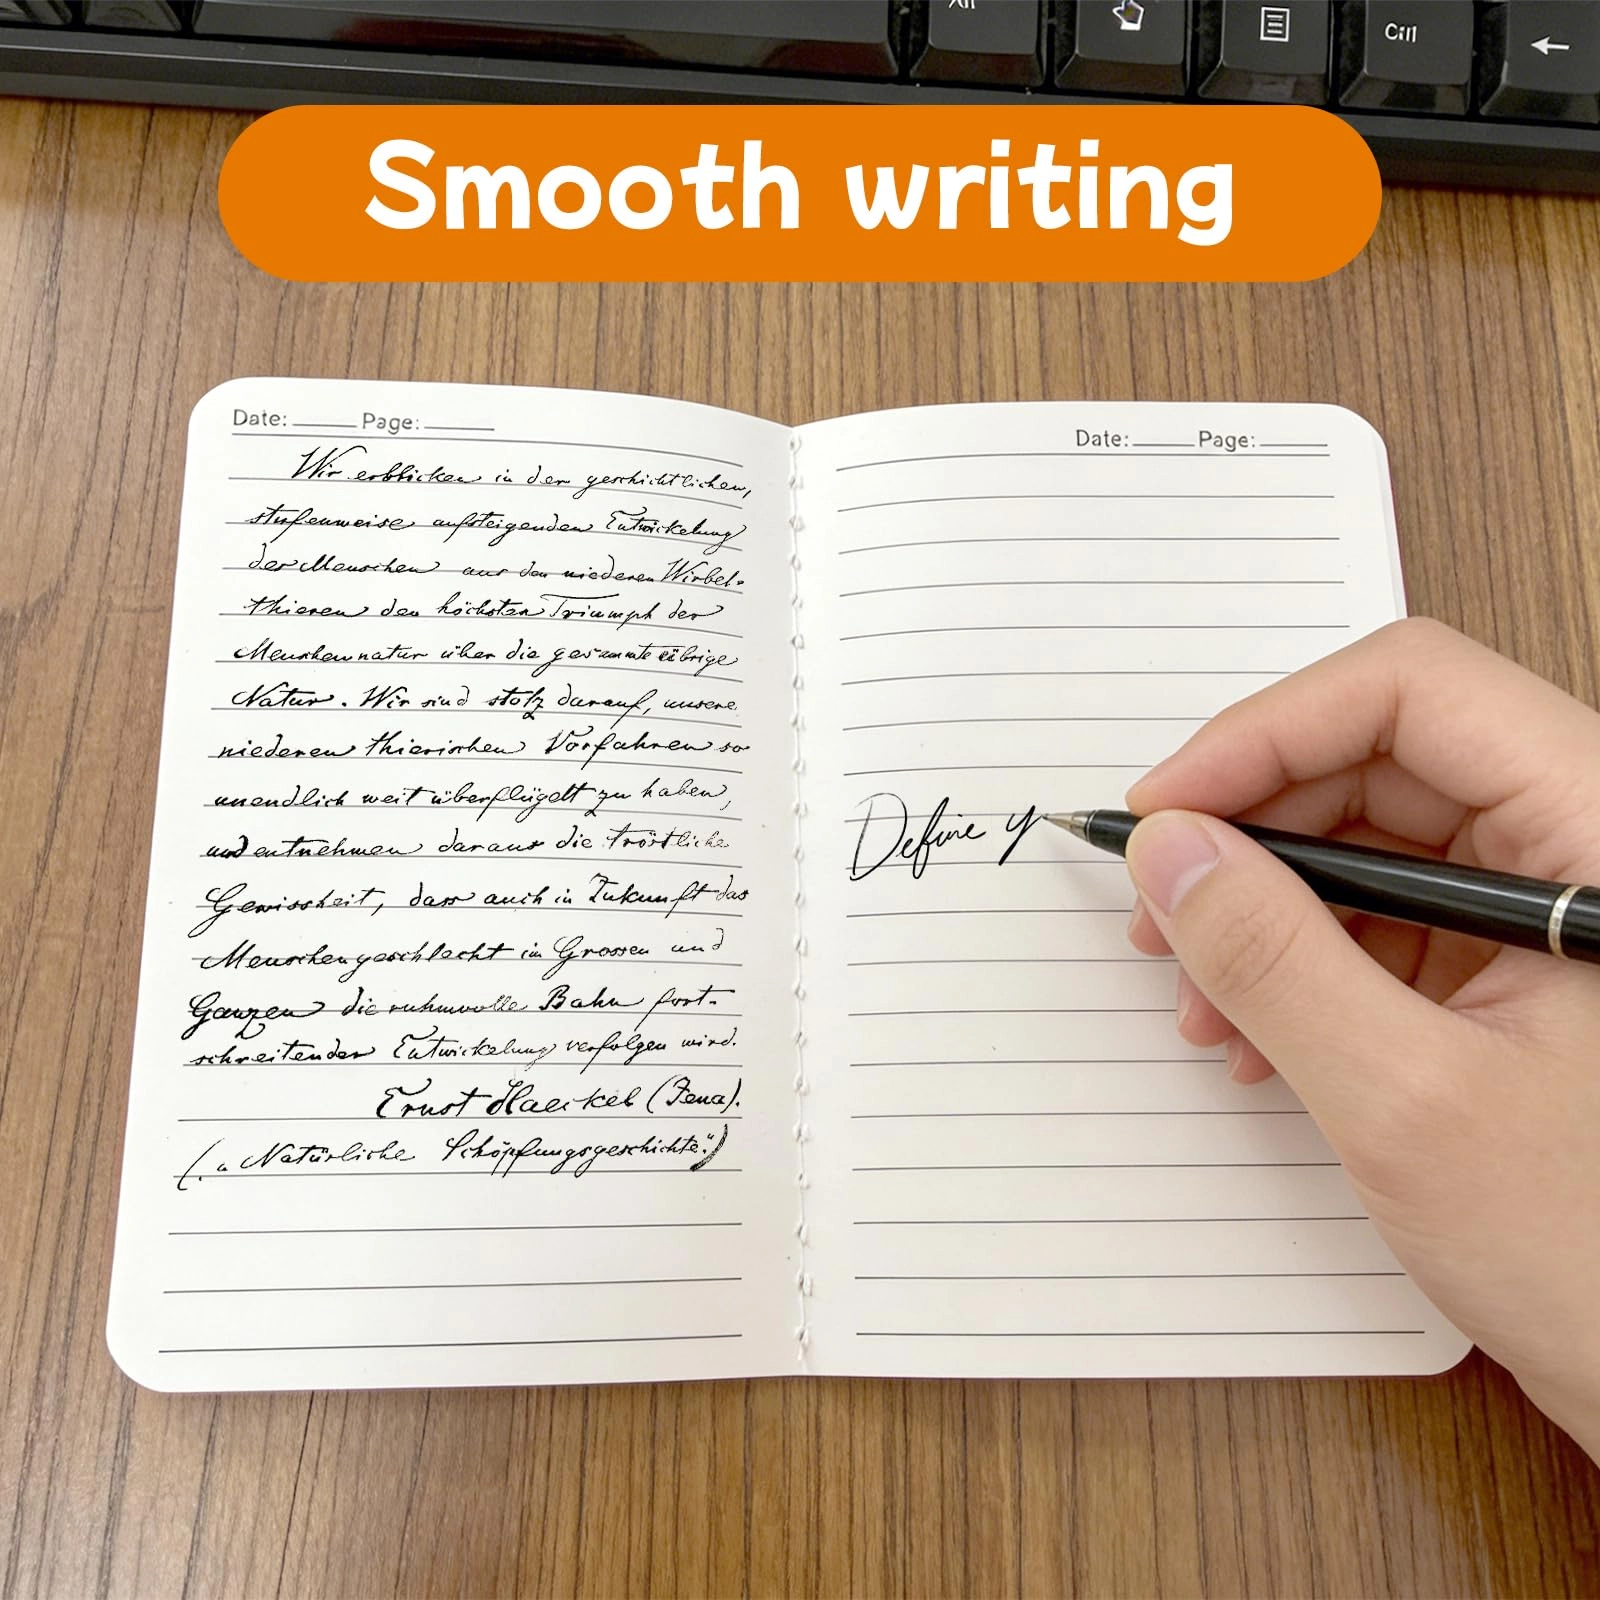 Alt
Ctrl
Smooth writing
Date: Page:
Wir erblicken in der geschichtlichen,
stufenweise aufsteigenden Entwickelung
des Menschen aus den niederen Wirbel-
thieren den höchsten Triumph der
Menschennatur über die gesammte übrige
Natur. Wir sind stolz darauf, unsere
niederen thierischen Vorfahren so
unendlich weit überflügelt zu haben,
und entnehmen daraus die tröstliche
Gewissheit, dass auch in Zukunft das
Menschengeschlecht im Grossen und
Ganzen die ruhmvolle Bahn fort-
schreitender Entwickelung verfolgen wird.
Ernst Haeckel (Jena).
(„Natürliche Schöpfungsgeschichte“)
Date: Page:
Define y